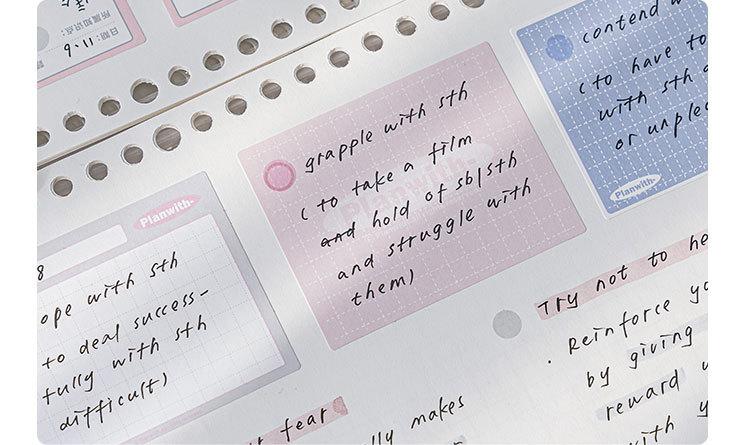 所属知识点:
日期: 11.6
grapple with sth
(to take a film
and hold of sb/sth
and struggle with
them)
contend w
(to have to
with sth
or unple
Planwith-
Planwith-
8
ope with sth
to deal success-
fully with sth
difficult)
Try not to he
. Reinforce yo
by giving
reward
with y
t fear
lly makes